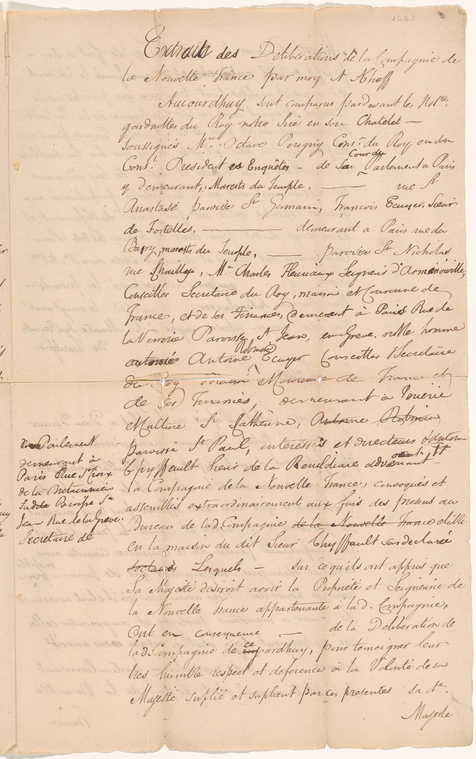 Extrait des Déliberations de la Compagnie de
la Nouvelle france par moy A.
Aujourdhuy sont comparus pardevant les Not.res
gardnottes du Roy notre Sire en son Chatelet —
soussignés M.re Octave Perigny Con.er du Roy en son
Con.er President es Enquêtes — de Sa Cour de parlement a Paris
y demeurant, Marests du Temple. — rue S.t
Anastase paroisse S.t Germain, François Ecuyer, Sieur
de Fortelles. — demeurant a Paris rue du
marests du Temple, — paroisse S.t Nicholas
rue , M.re Charles Seigneur d'Armenonville,
Conseiller Secretaire du Roy, maison et Couronne de
france, et de ses Finances, demeurant à Paris Rue de
la Verrerie Paroisse, S.t Jean, en Greve. noble homme
Antoine Ecuyer Conseiller Secretaire
du Roy Maison et Couronne de France et
de ses Finances, demeurant à
Culture S.te Catherine, Antoine
paroisse S.t Paul, interessés et directeurs
Sieur de la
la Compagnie de la Nouvelle france, convoqués et
assemblés extraordinairement aux fins des presens au
Bureau de lad. Compagnie de la Nouvelle France
en la maison du dit Sieur
Lesquels — sur ce qu'ils ont appris que
Sa Majesté desiroit avoir la Propriété et Seigneurie de
la Nouvelle france appartenante à lad. Compagnie,
Ont en consequence — de la Deliberation de
lad. Compagnie de ce jourdhuy, pour temoigner leur
tres humble respect et deference à la Volonté de sa
Majesté suplié et suplient par ces presentes sa d.te
Majesté
en Parlement
demeurant à
Paris Rue S.te Croix
de la Bretonnerie
Paroisse S.t
Jean Rue de la Greve
Secretaire de